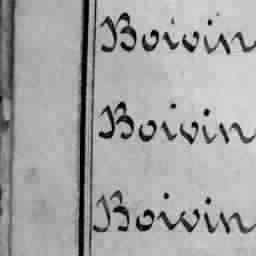 Boivin
Boivin
Boivin